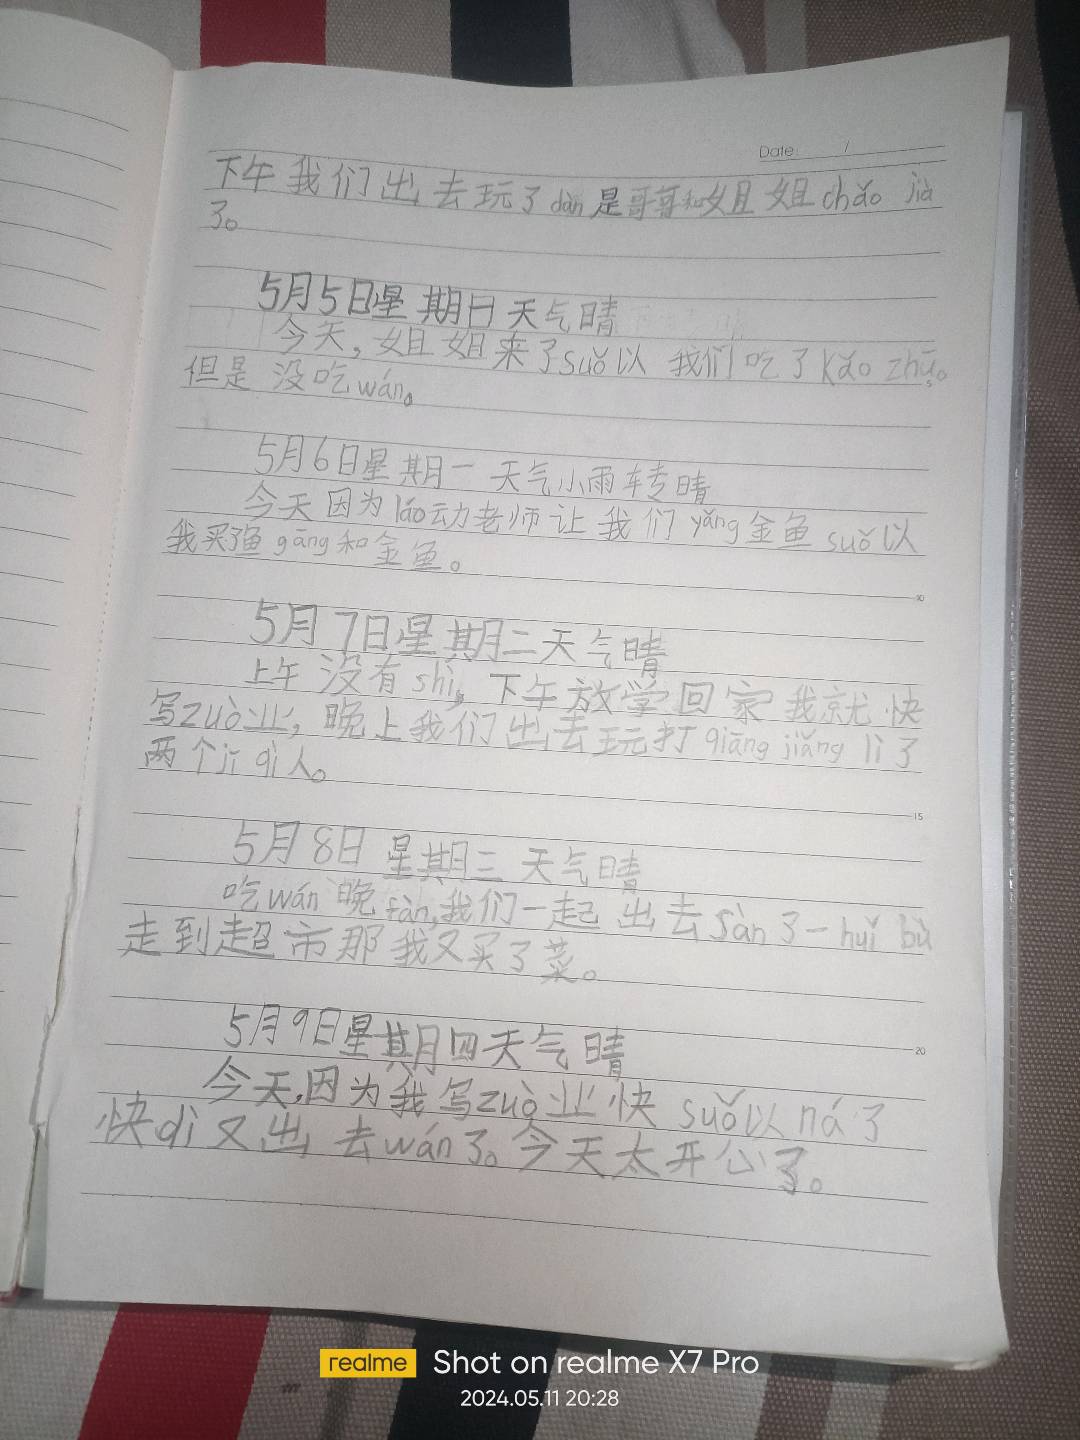 Date: /
下午我们出去玩了dàn是哥哥和姐姐chǎo jià
了。
5月5日星期日天气晴
今天，姐姐来了suǒ以我们吃了kǎo zhū。
但是没吃wán。
5月6日星期一天气小雨转晴
今天因为láo动老师让我们yǎng金鱼suǒ以
我买了鱼gāng和金鱼。
10
5月7日星期二天气晴
上午没有shì，下午放学回家我就快
写zuò业，晚上我们出去玩打qiāng jiǎng lì了
两个jī qì人。
15
5月8日星期三天气晴
吃wán晚fàn，我们一起出去sàn了一huǐ bù
走到超市那我又买了菜。
5月9日星期四天气晴
20
今天，因为我写zuò业快suǒ以ná了
快dì又出去wán了。今天太开心了。
realme Shot on realme X7 Pro
2024.05.11 20:28